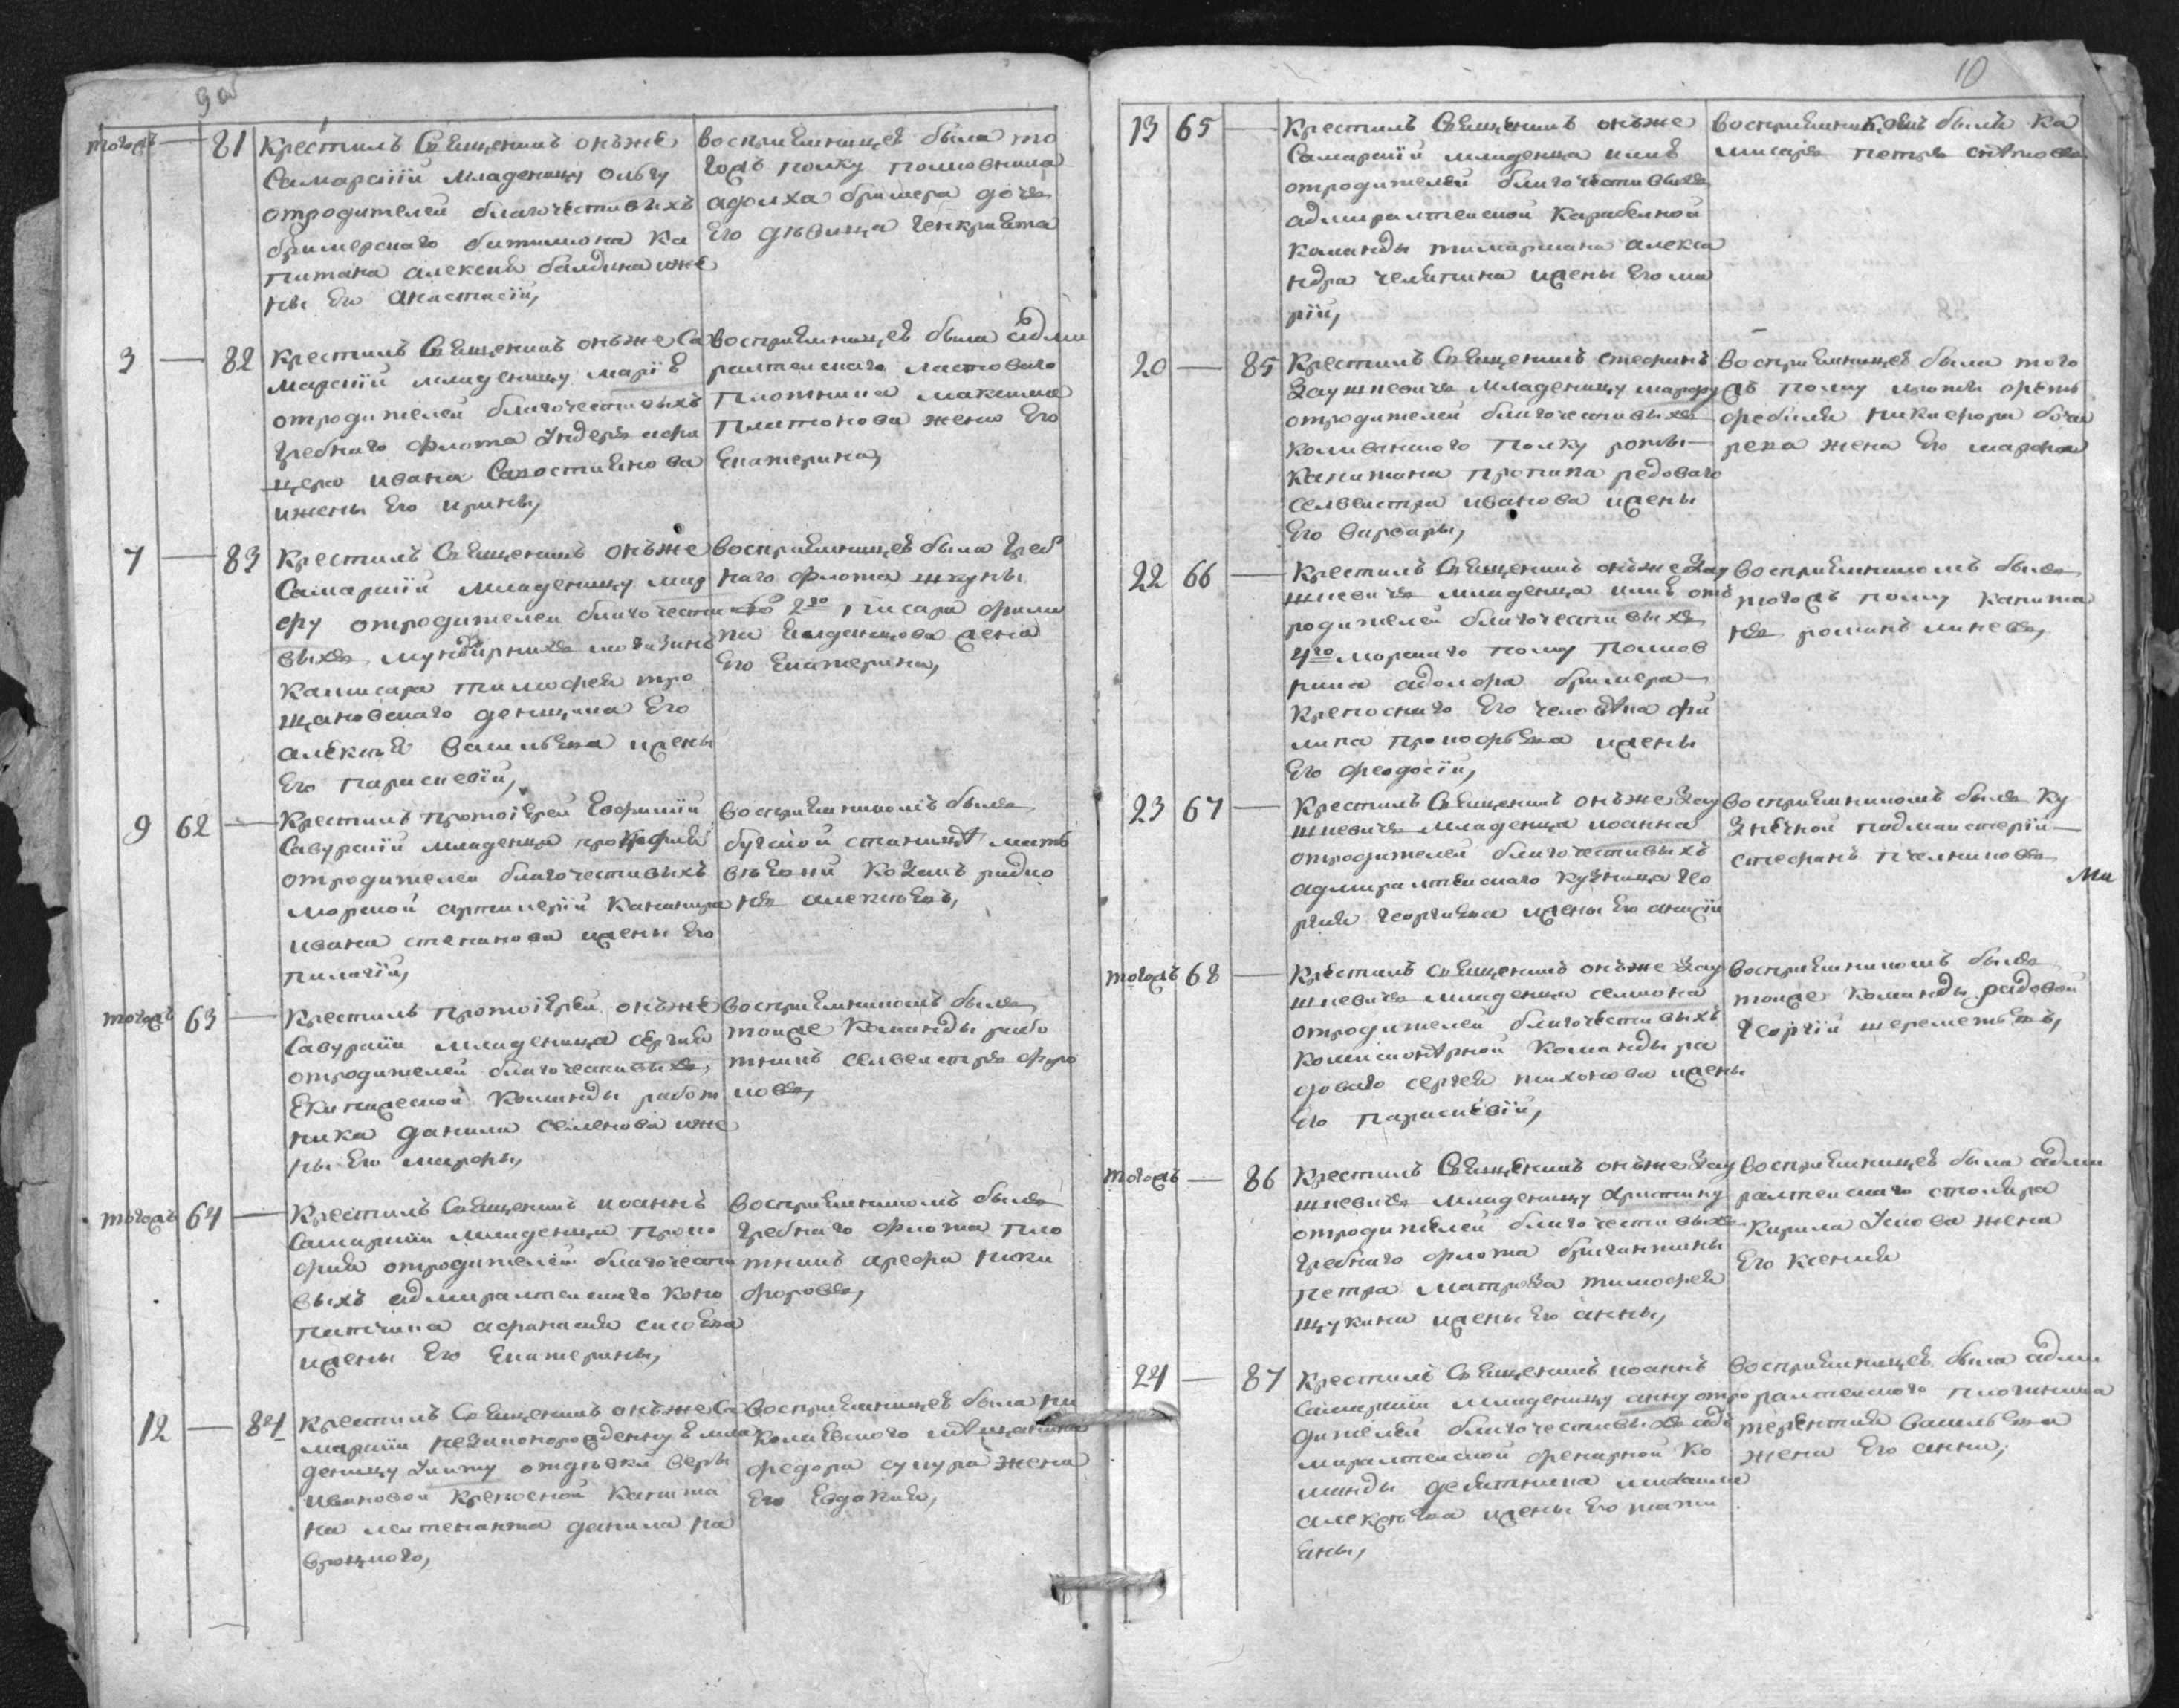 9 об
тогожъ — 81 Крестилъ Священикъ онъже
Самарскій младеницу Ольгу
отродителей благочестивыхъ
бримерскаго баталиона ка
питана алексия балдина иже
ны Его Анастасіи,
восприемницей была то
гожъ полку полковника
адолха бримера дочь
Его дѣвица генкриета
3 — 82 Крестилъ Священикъ онъже Са
марскій младеницу маріѣ
отродителей благочестивыхъ
гребнаго флота ундеръ офи
цера ивана
ижены Его ирины,
восприемницей была адми
ралтейскаго ластоваго
плотника максима
платонова жена Его
Екатерина,
7 — 83 Крестилъ Священикъ онъже
Самарскій младеницу мар
фу отродителей благочести
выхъ мундирныхъ магазинъ
камисара тимофея тро
щановскаго денщика Его
алексея васильева ижены
Его параскевіи,
восприемницей была греб
наго флота шкуны
2го писаря фили
па жена
Его Екатерина,
9 62 — Крестилъ протоіерей Евфимій
Савурскій младенца прокофия
отродителей благочестивыхъ
морской артилеріи канонира
ивана степанова ижены Его
пилагіи,
восприемникомъ былъ
бугской станицы матв
козакъ радио
нъ алексѣевъ,
тогожъ 63 — Крестилъ протоіерей онъже
Савурскій младенца сергия
отродителей благочестивыхъ
Екипажеской команды работ
ника данила семенова иже
ны Его марфы,
восприемникомъ былъ
тоиже команды рабо
тникъ селвестръ фро
ловъ,
тогожъ 64 — Крестилъ Священикъ иоаннъ
Самарскій младенца проко
фия отродителей благочести
выхъ адмиралтейскаго коно
патчика афанасия сысоева
ижены Его Екатерины,
восприемникомъ былъ
гребнаго флота пло
тникъ арефа ники
форовъ,
12 — 84 Крестилъ Священикъ онъже Са
марскій незаконорожденнуѣ мла
деницу Улиту отдѣвки веры
ивановой крепосной капита
на лейтенанта данила на
вроцкого,
восприемницей была ни
колаевского мѣщанина
федора сущра жена
Его Евдокия,
10
13 65 — Крестилъ Священикъ онъже
Самарскій младенца иакова
отродителей благочестивыхъ
адмиралтейской карабелной
каманды тимармана алекса
ндра челяпина ижены Его ма
ріи,
восприемникомъ былъ ка
мисаръ петръ
20 — 85 Крестилъ Священикъ стефанъ
Заушкевичъ младеницу марфу
отродителей благочестивыхъ
коливанского полку роты
капитана протопа редоваго
селвестра иванова ижены
Его варвары,
восприемницей была того
жъ полку роты
фебеля никифора боча
рева жена Его марфа
22 66 — Крестилъ Священикъ онъже Зау
шкевичъ младенца отъ
родителей благочестивыхъ
4го морскаго полку полков
ника адолфа бримера
крепоснаго Его человѣка фи
липа прокофьева ижены
Его феодосіи,
восприемникомъ былъ
тогожъ полку капита
нъ романъ миневъ,
23 67 — Крестилъ Священикъ онъже Зау
шкевичъ младенца иоанна
отродителей благочестивыхъ
адмиралтейскаго кузнеца гео
ргия георгиева ижены Его
восприемникомъ былъ ку
знечной подмастеріи
стефанъ пчелниковъ
Ма
тогожъ 68 — Крестилъ священикъ онъже Зау
шкевичъ младенца семиона
отродителей благочестивыхъ
команды ря
доваго сергея тихонова ижены
Его параскевіи,
восприемникомъ былъ
тоиже команды радовой
георгій шереметьевъ,
тогожъ — 86 Крестилъ Священикъ онъже Зау
шкевичъ младеницу христину
отродителей благочестивыхъ
гребнаго флота бригантины
петра матроза тимофея
щукина ижены Его анны,
восприемницей была адми
ралтейскаго столяра
кирила Усова жена
Его ксения
24 — 87 Крестилъ Священикъ иоаннъ
Самарскій младеницу анну отро
дителей благочестивыхъ ад
миралтейской фонарной ко
манды десятника михаила
алексѣева ижены Его тати
яны,
восприемницей была адми
ралтейского плотника
терентия васильева
жена Его анна,